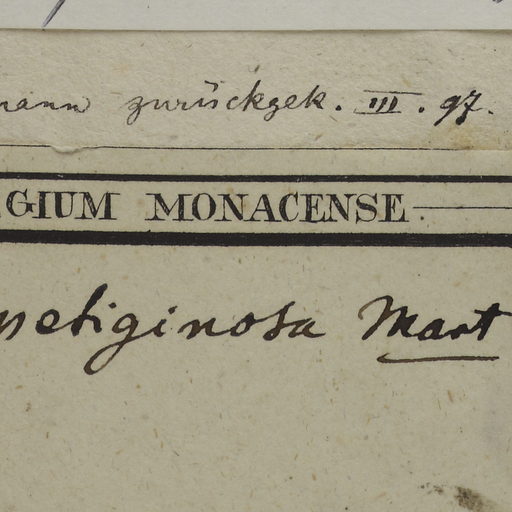 mann zurückgek. III. 97.
GIUM MONACENSE
petiginosa Mart